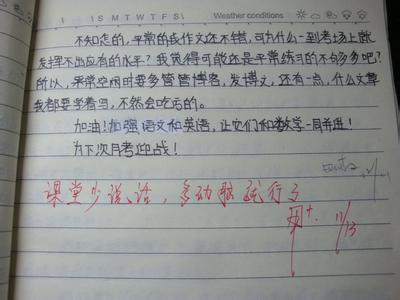 \S M T W T F S\ Weather conditions
不知怎的，平常的我作文还不错，可为什么一到考场上就
发挥不出应有的水平？我觉得可能还是平常练习的不够多吧？
所以，平常空闲时要多管管博客，发博文，还有一点，什么文章
我都要学着写，不然会吃亏的。
加油！加强语文和英语，让它们和数学一同并进！
为下次月考迎战！
课堂少说话，多动脑就行了
11/13